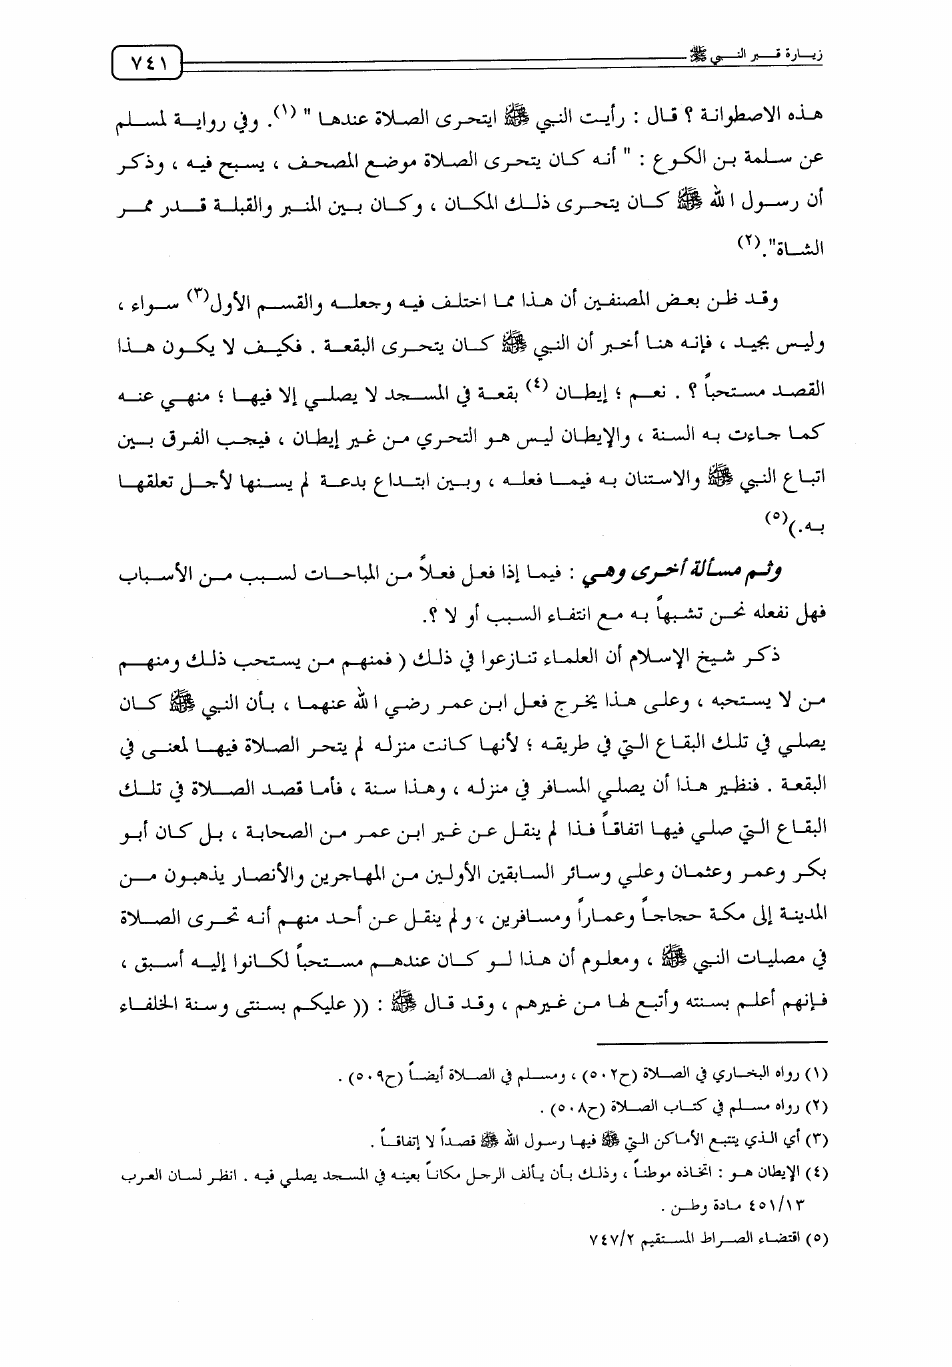 زيارة قبر النبي ﷺ
٧٤١
هذه الاصطوانة ؟ قال : رأيت النبي ﷺ ايتحرى الصلاة عندها " (١). وفي رواية لمسلم
عن سلمة بن الكوع : " أنه كان يتحرى الصلاة موضع المصحف ، يسبح فيه ، وذكر
أن رسول الله ﷺ كان يتحرى ذلك المكان ، وكان بين المنبر والقبلة قدر ممر
الشاة".(٢)
وقد ظن بعض المصنفين أن هذا مما اختلف فيه وجعله والقسم الأول(٣) سواء ،
وليس بجيد ، فإنه هنا أخبر أن النبي ﷺ كان يتحرى البقعة . فكيف لا يكون هذا
القصد مستحباً ؟ . نعم ؛ إيطان (٤) بقعة في المسجد لا يصلي إلا فيها ؛ منهي عنه
كما جاءت به السنة ، والإيطان ليس هو التحري من غير إيطان ، فيجب الفرق بين
اتباع النبي ﷺ والاستنان به فيما فعله ، وبين ابتداع بدعة لم يسنها لأجل تعلقها
به.)(٥)
وثم مسألة أخرى وهي : فيما إذا فعل فعلاً من المباحات لسبب من الأسباب
فهل نفعله نحن تشبهاً به مع انتفاء السبب أو لا ؟.
ذكر شيخ الإسلام أن العلماء تنازعوا في ذلك ( فمنهم من يستحب ذلك ومنهم
من لا يستحبه ، وعلى هذا يخرج فعل ابن عمر رضي الله عنهما ، بأن النبي ﷺ كان
يصلي في تلك البقاع التي في طريقه ؛ لأنها كانت منزله لم يتحر الصلاة فيها لمعنى في
البقعة . فنظير هذا أن يصلي المسافر في منزله ، وهذا سنة ، فأما قصد الصلاة في تلك
البقاع التي صلي فيها اتفاقاً فذا لم ينقل عن غير ابن عمر من الصحابة ، بل كان أبو
بكر وعمر وعثمان وعلي وسائر السابقين الأولين من المهاجرين والأنصار يذهبون من
المدينة إلى مكة حجاجاً وعماراً ومسافرين ، ولم ينقل عن أحد منهم أنه تحرى الصلاة
في مصليات النبي ﷺ ، ومعلوم أن هذا لو كان عندهم مستحباً لكانوا إليه أسبق ،
فإنهم أعلم بسنته وأتبع لها من غيرهم ، وقد قال ﷺ : (( عليكم بسنتى وسنة الخلفاء
(١) رواه البخاري في الصلاة (ح٥٠٢) ، ومسلم في الصلاة أيضاً (ح٥٠٩) .
(٢) رواه مسلم في كتاب الصلاة (ح٥٠٨) .
(٣) أي الذي يتتبع الأماكن التي ﷺ فيها رسول الله ﷺ قصداً لا إتفاقاً .
(٤) الإيطان هو : اتخاذه موطناً ، وذلك بأن يألف الرجل مكاناً بعينه في المسجد يصلي فيه . انظر لسان العرب
٤٥١/١٣ مادة وطن .
(٥) اقتضاء الصراط المستقيم ٧٤٧/٢